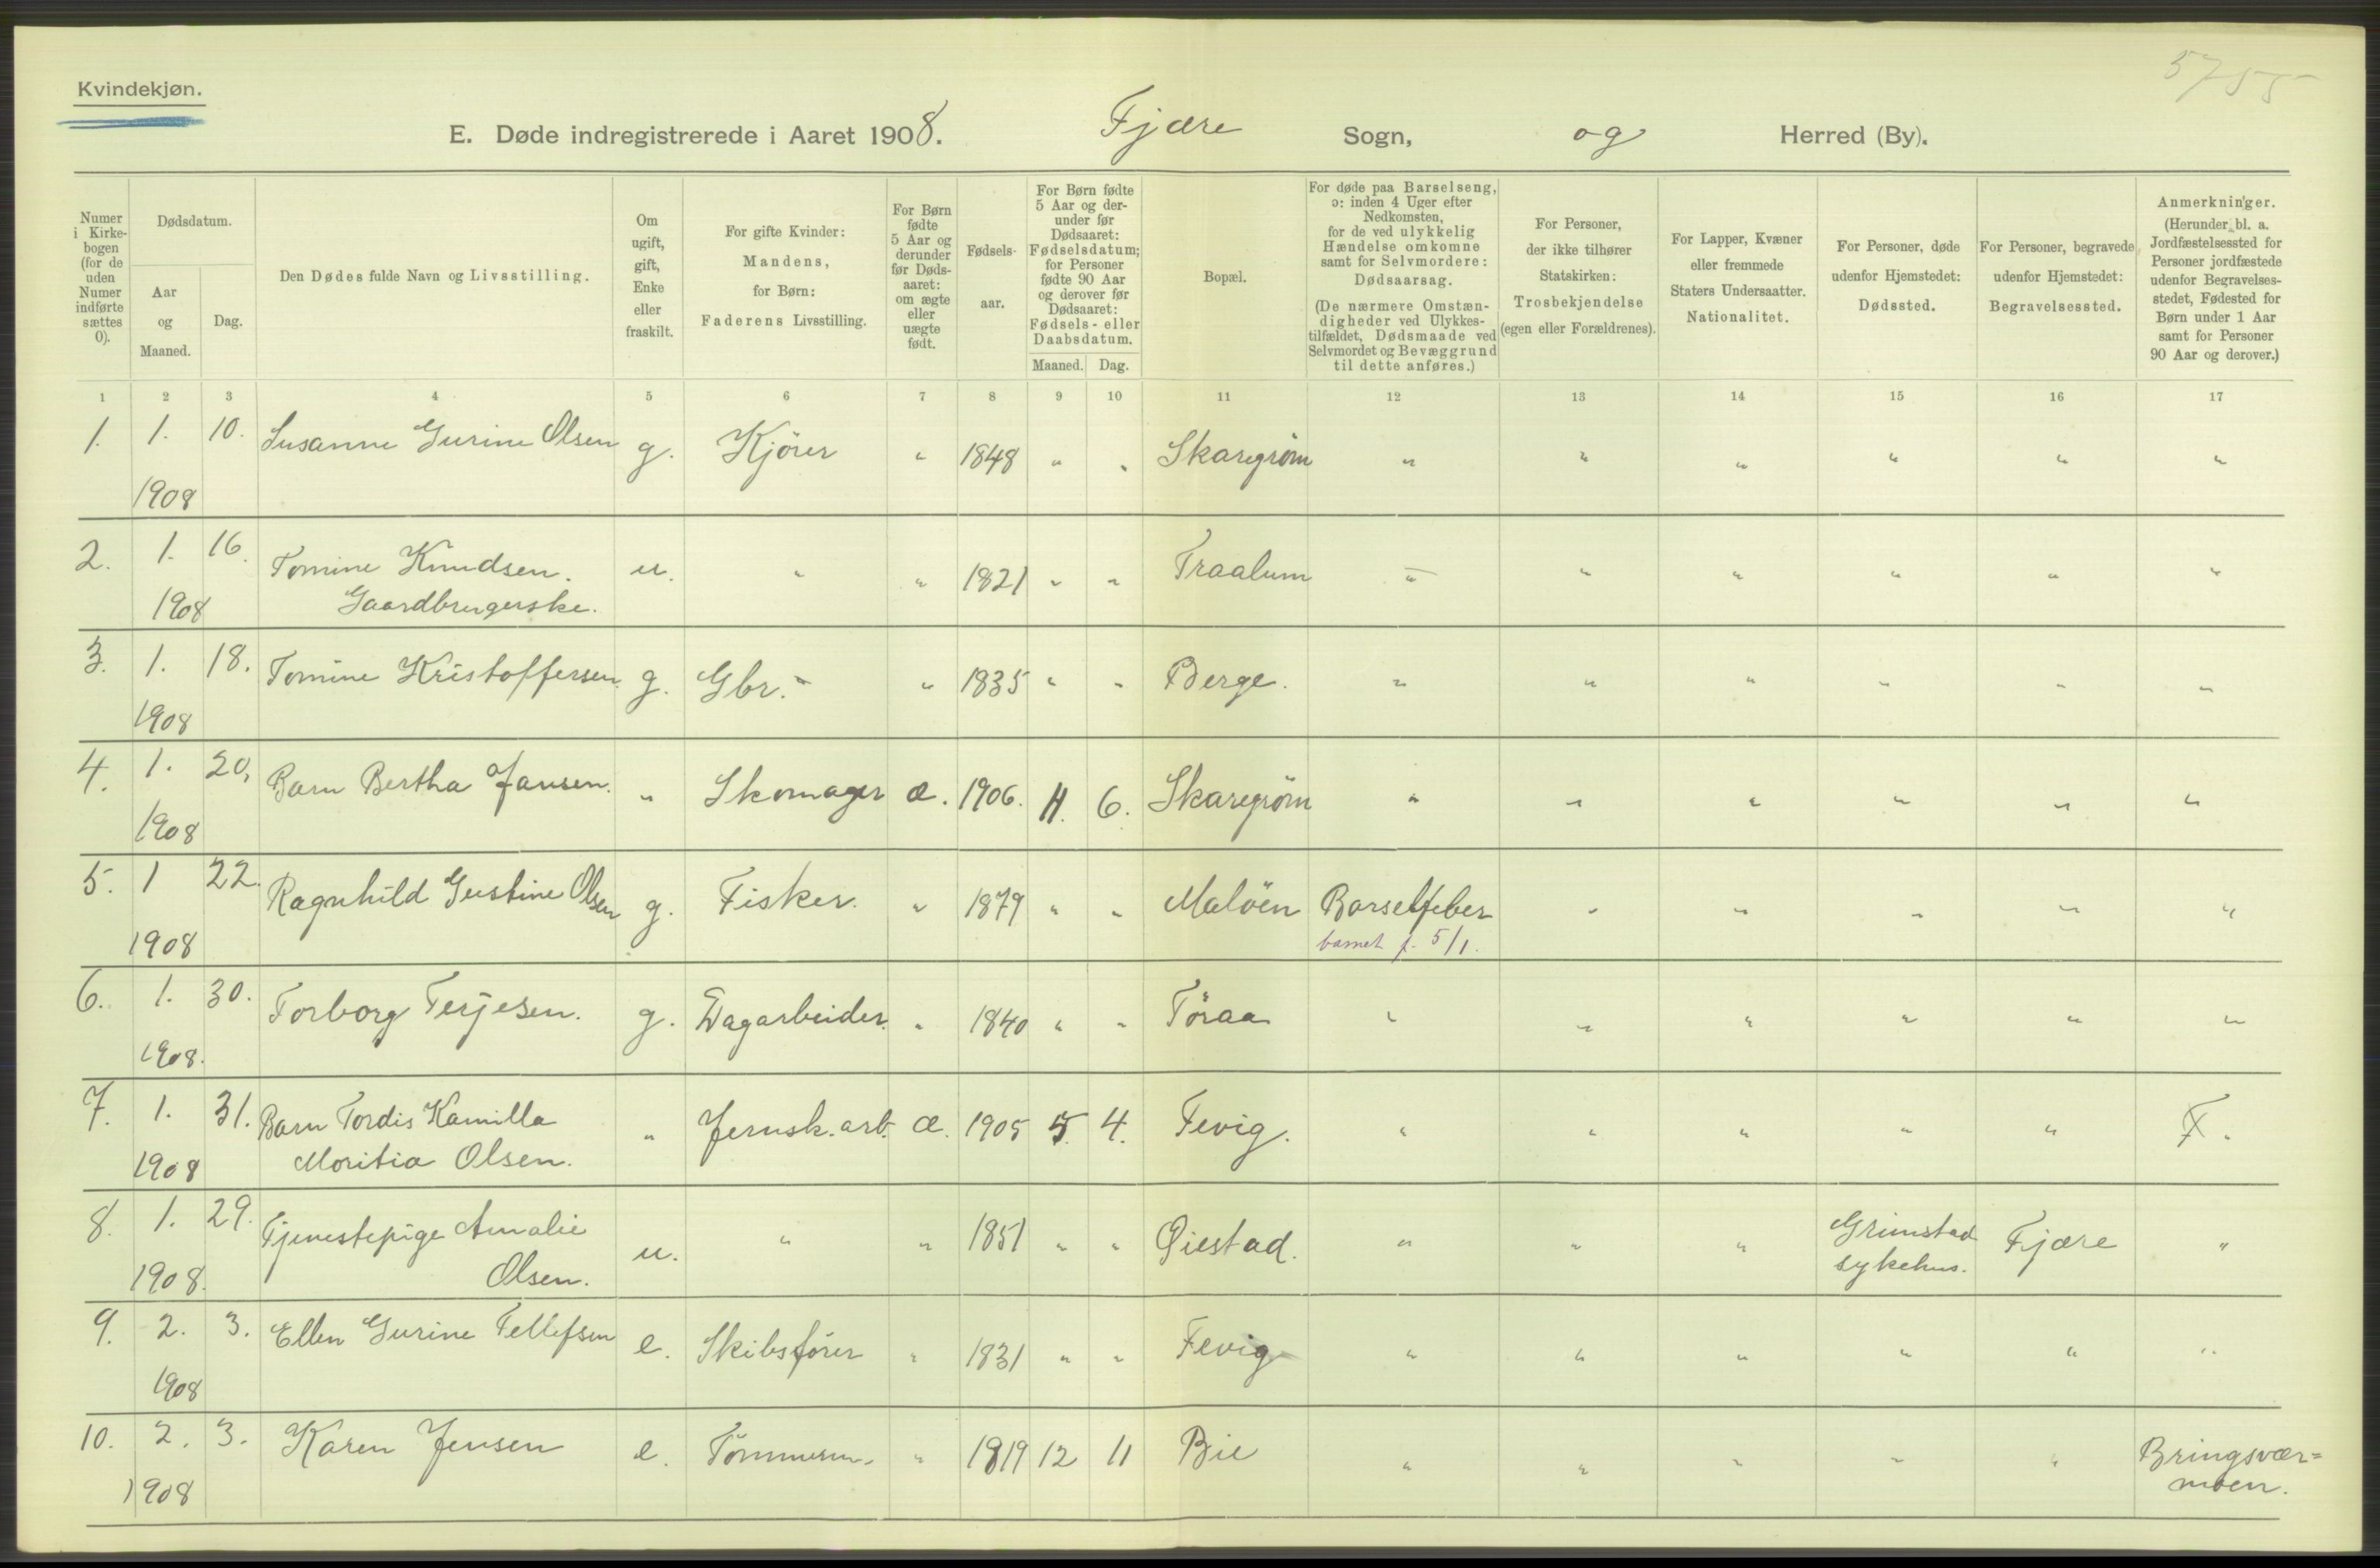 5755
Kvindekjøn.
E. Døde indregistrerede i Aaret 1908. Fjære Sogn, og Herred (By).
Numer i Kirkebogen (for de uden Numer indførte sættes 0).
Dødsdatum.
Aar og Maaned.
Dag.
Den Dødes fulde Navn og Livsstilling.
Om ugift, gift, Enke eller fraskilt.
For gifte Kvinder: Mandens, for Børn: Faderens Livsstilling.
For Børn fødte 5 Aar og derunder før Døds-aaret: om ægte eller uægte født.
Fødsels-aar.
For Børn fødte 5 Aar og der-under før Dødsaaret: Fødselsdatum; for Personer fødte 90 Aar og derover før Dødsaaret: Fødsels- eller Daabsdatum.
Maaned. Dag.
Bopæl.
For døde paa Barselseng, ɔ: inden 4 Uger efter Nedkomsten, for de ved ulykkelig Hændelse omkomne samt for Selvmordere: Dødsaarsag. (De nærmere Omstæn-digheder ved Ulykkes-tilfældet, Dødsmaade ved Selvmordet og Bevæggrund til dette anføres.)
For Personer, der ikke tilhører Statskirken: Trosbekjendelse (egen eller Forældrenes).
For Lapper, Kvæner eller fremmede Staters Undersaatter. Nationalitet.
For Personer, døde udenfor Hjemstedet: Dødssted.
For Personer, begravede udenfor Hjemstedet: Begravelsessted.
Anmerkninger. (Herunder bl. a. Jordfæstelsessted for Personer jordfæstede udenfor Begravelses-stedet, Fødested for Børn under 1 Aar samt for Personer 90 Aar og derover.)
1 2 3 4 5 6 7 8 9 10 11 12 13 14 15 16 17
1. 1. 10. Susanne Gurine Olsen g. Kjörer " 1848 " " Skaregröm " " " " " "
1908
2. 1. 16. Tomine Knudsen. u. " " 1821 " " Traalum " " " " " "
1908 Gaardbrugerske.
3. 1. 18. Tomine Kristoffersen. g. Gbr. " 1835 " " Berge. " " " " " "
1908
4. 1. 20, Barn Bertha Jansen. " Skomager æ. 1906. 11. 6. Skaregröm " " " " " "
1908
5. 1 22. Ragnhild Gustine Olsen g. Fisker. " 1879 " " Malöen Barselfeber " " " " "
1908 barnet f. 5/1.
6. 1. 30. Torborg Terjesen. g. Dagarbeider. " 1840 " " Töraa " " " " " "
1908.
7. 1. 31. Barn Tordis Kamilla " Jernsk. arb. æ. 1905 5. 4. Fevig. " " " " "
1908 Moritia Olsen.
8. 1. 29. Tjenestepige Amalie u. " " 1851 " " Öiestad. " " " Grimstad Fjære "
1908. Olsen. sykehus.
9. 2. 3. Ellen Gurine Tellefsen e. Skibsförer " 1831 " " Fevig " " " " " "
1908
10. 2. 3. Karen Jensen e. Tömmerm. " 1819 12 11 Bie " " " " " Bringsvær=
1908 moen.